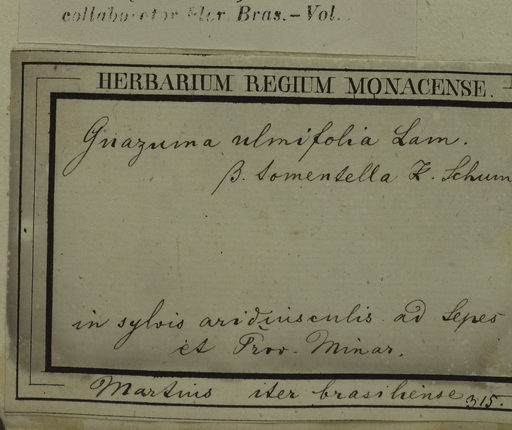 collaborator Flor. Bras.-Vol.
HERBARIUM REGIUM MONACENSE.
Guazuma ulmifolia Lam.
β. tomentella K. Schum
in sylvis aridiusculis ad Sepes
et Prov. Minar.
Martius iter brasiliense 315.